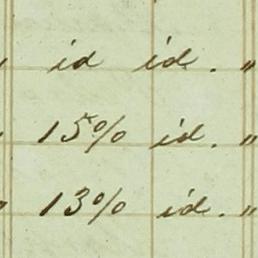 " id id. "
" 15% id. "
" 13% id. "